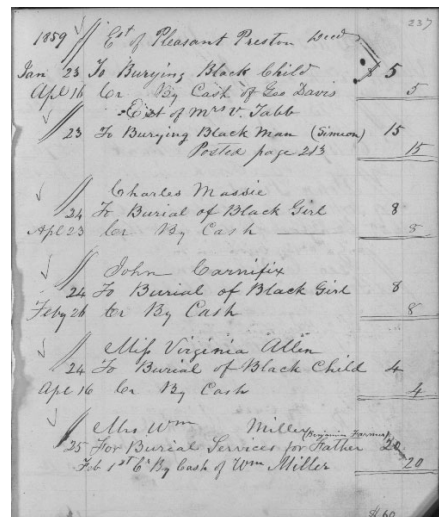 237
1859 Est of Pleasant Preston Decd
Jan 23 To Burying Black Child 5
Apl 16 Cr By Cash of Geo Davis 5
Est of Mrs V. Tabb
23 To Burying Black Man (Simeon) 15
Posted page 213 15
Charles Massie
24 To Burial of Black Girl 8
Apl 23 Cr By Cash 8
John Carnifix
24 To Burial of Black Girl 8
Feby 26 Cr By Cash 8
Miss Virginia Allen
24 To Burial of Black Child 4
Apl 16 Cr By Cash 4
Mrs Wm Miller (Benjamin
25 For Burial Services for Father 20
Feb 1st Cr By Cash of Wm Miller 20
$60